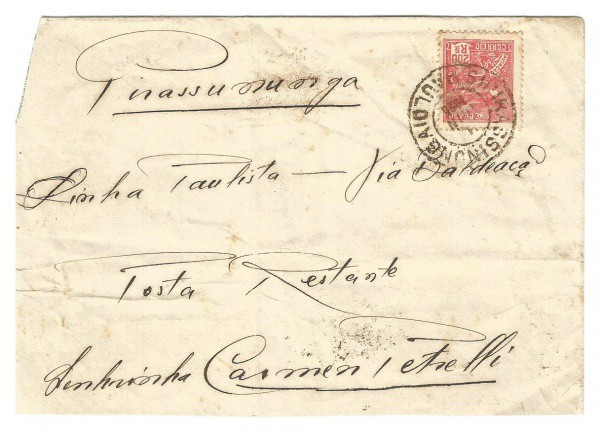 Pirassununga
Linha Paulista — Via Baldeacã
Posta Restante
Senhorinha Carmen Petrelli
CORREIO
200 Rs
BRASIL